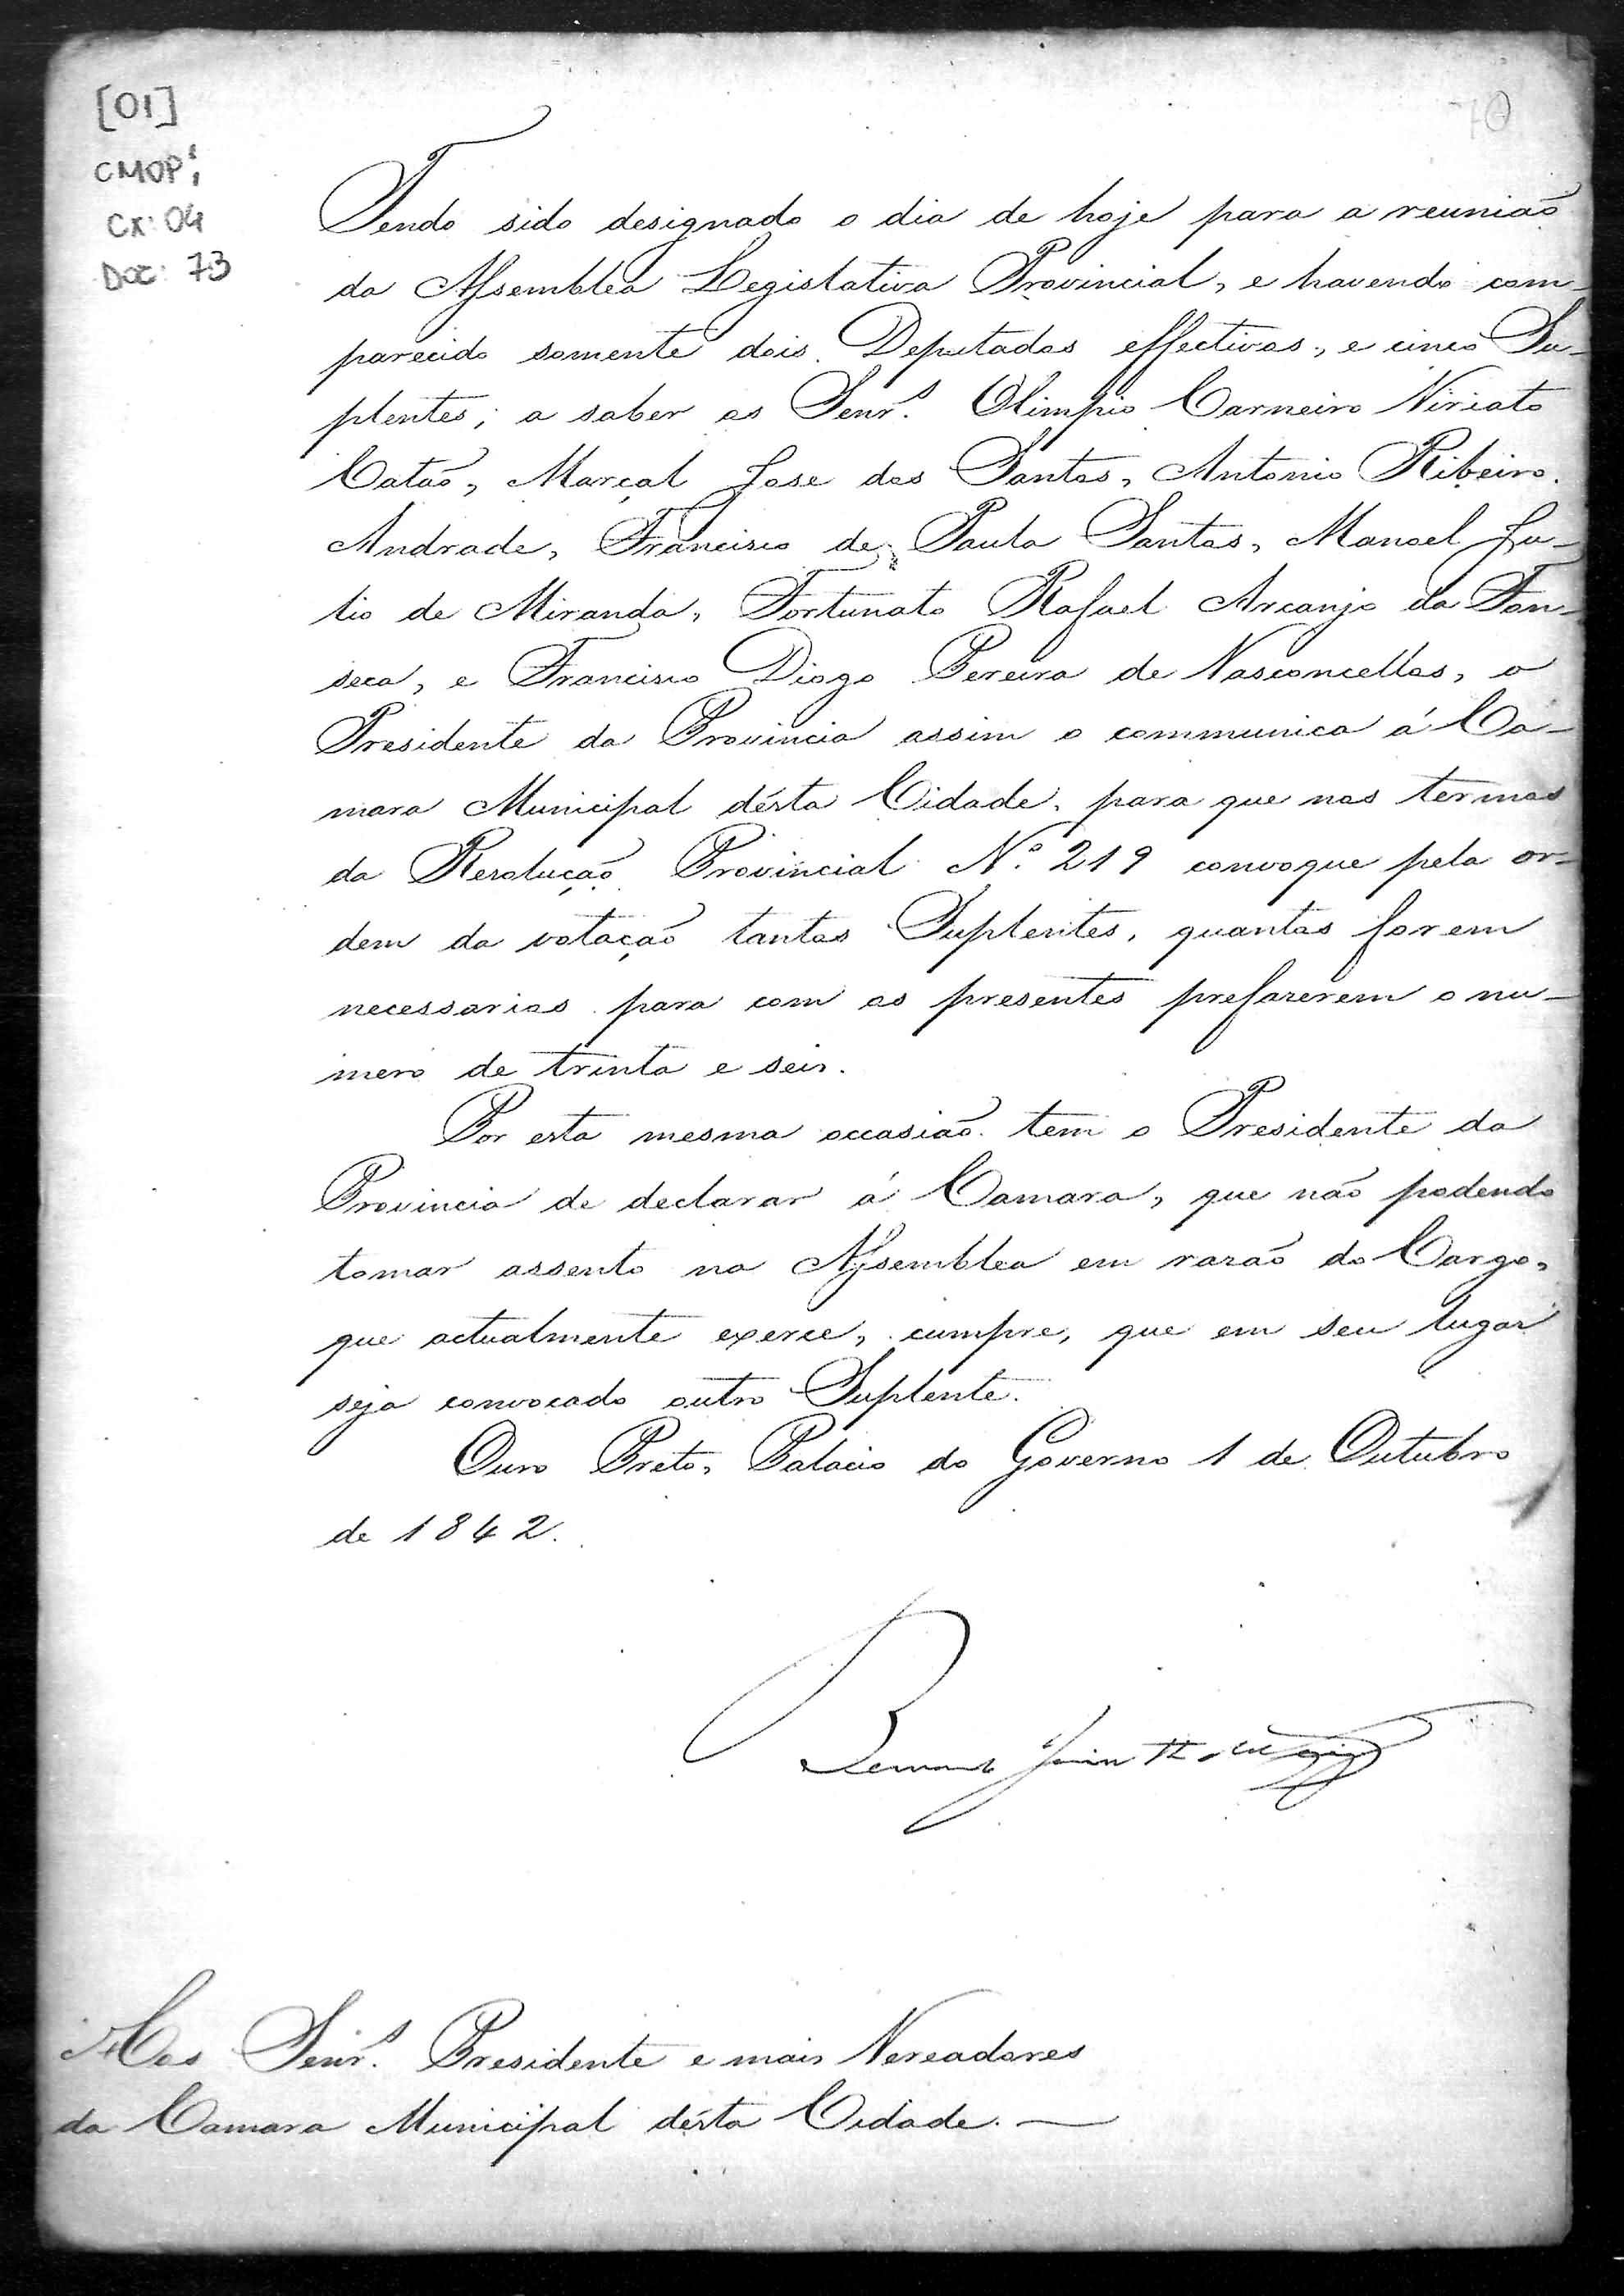 [01]
CMOP;
CX: 04
DOC: 73
70
Tendo sido designado o dia de hoje para a reunião
da Assemblea Legislativa Provincial, e havendo com-
parecido somente dois Deputados effectivos, e cinco Su-
plentes; a saber os Senr.s Olimpio Carneiro Viriato
Catão, Marçal Jose dos Santos, Antonio Ribeiro
Andrade, Francisco de Paula Santos, Manoel Ju-
lio de Miranda, Fortunato Rafael Arcanjo da Fon-
seca, e Francisco Diogo Pereira de Vasconcellos, o
Presidente da Provincia assim o communica á Ca-
mara Municipal désta Cidade, para que nos termos
da Resolução Provincial N.º 219 convoque pela or-
dem da votação tantos Suplentes, quantos forem
necessarios para com os presentes prefazerem o nu-
mero de trinta e seis.
Por esta mesma occasião tem o Presidente da
Provincia de declarar á Camara, que não podendo
tomar assento na Assemblea em razão do Cargo,
que actualmente exerce, cumpre, que em seu lugar
seja convocado outro Suplente.
Ouro Preto, Palacio do Governo 1 de Outubro
de 1842.
Aos Senr.s Presidente e mais Vereadores
da Camara Municipal désta Cidade.